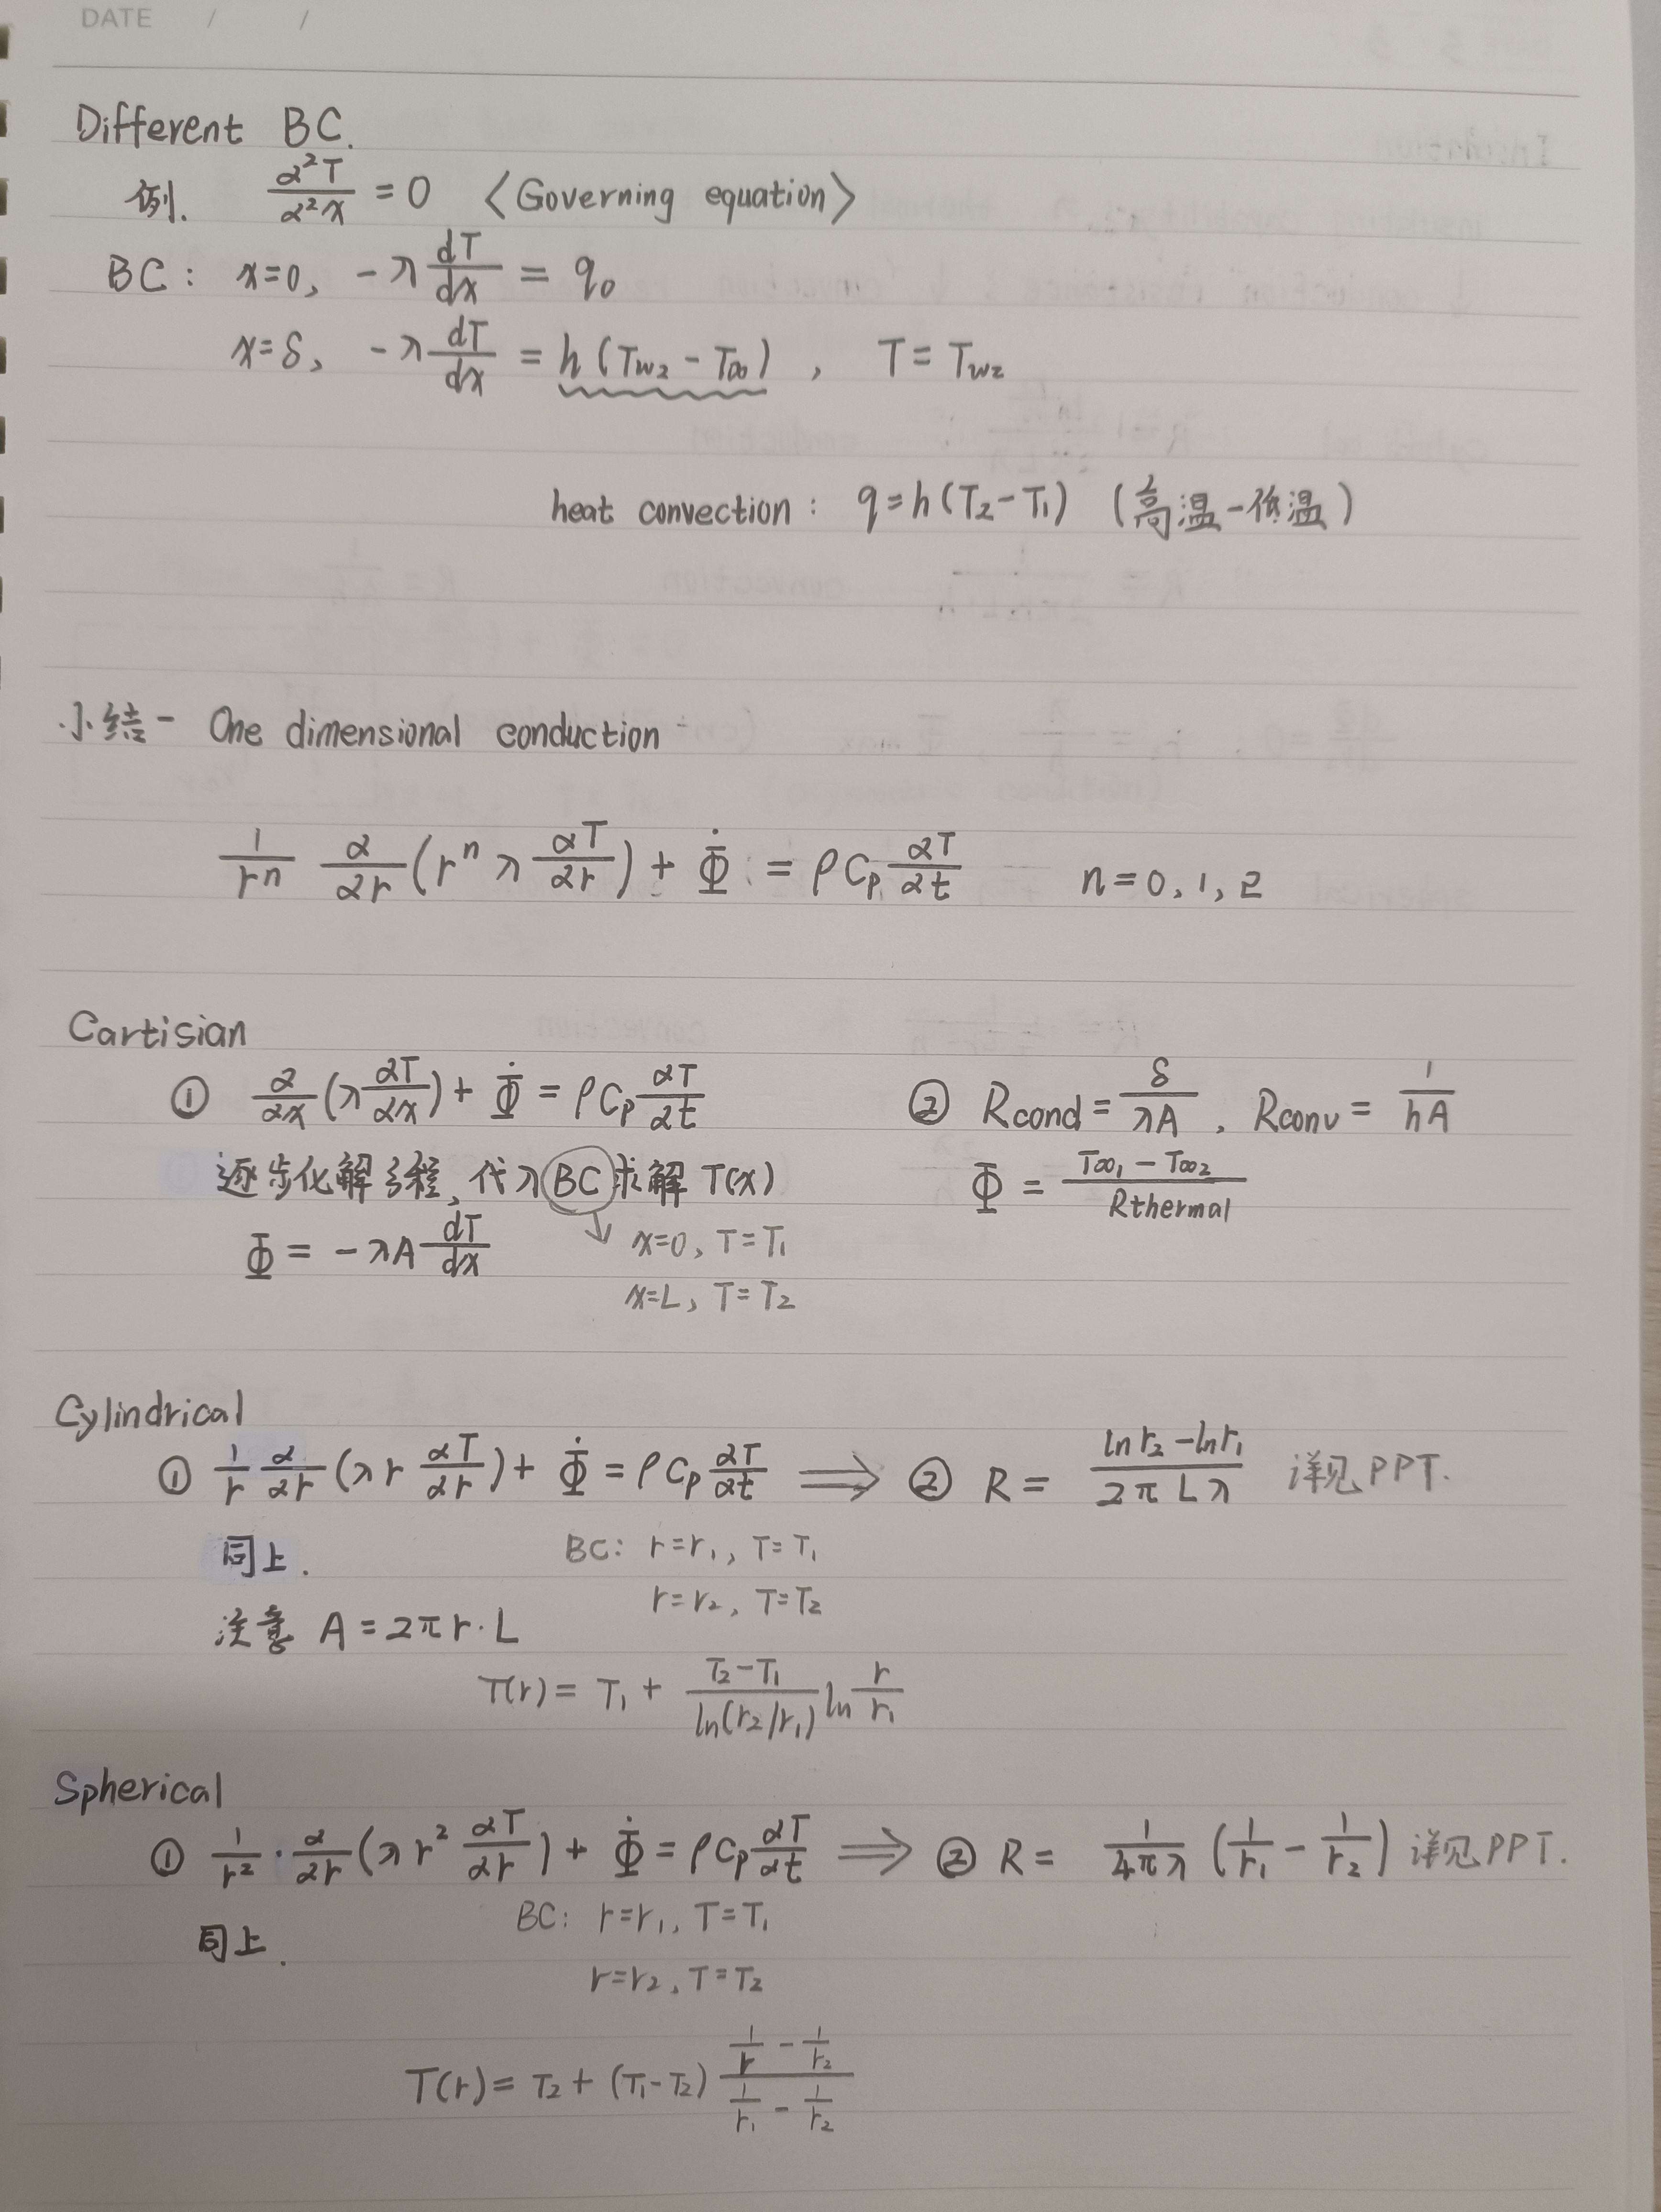 DATE / /
Different BC.
例. ∂²T/∂²x = 0 <Governing equation>
BC: x=0, -λ dT/dx = q₀
x=δ, -λ dT/dx = h(Tw₂ - T∞), T = Tw₂
heat convection: q=h(T₂-T₁) (高温-低温)
小结- One dimensional conduction
1/rⁿ ∂/∂r (rⁿ λ ∂T/∂r) + Φ̇ = ρCp ∂T/∂t n=0,1,2
Cartisian
① ∂/∂x (λ ∂T/∂x) + Φ̇ = ρCp ∂T/∂t ② Rcond = δ/λA, Rconv = 1/hA
逐步化解方程,代入BC求解T(x) Φ = T∞₁ - T∞₂ / Rthermal
Φ = -λA dT/dx x=0, T=T₁
x=L, T=T₂
Cylindrical
① 1/r ∂/∂r (λ r ∂T/∂r) + Φ̇ = ρCp ∂T/∂t ⟹ ② R = lnr₂-lnr₁ / 2πLλ 详见PPT.
同上. BC: r=r₁, T=T₁
r=r₂, T=T₂
注意 A=2πr·L
T(r) = T₁ + T₂-T₁ / ln(r₂/r₁) ln r/r₁
Spherical
① 1/r² · ∂/∂r (λ r² ∂T/∂r) + Φ̇ = ρCp ∂T/∂t ⟹ ② R = 1/4πλ (1/r₁ - 1/r₂) 详见PPT.
BC: r=r₁, T=T₁
同上.
r=r₂, T=T₂
T(r) = T₂ + (T₁-T₂) (1/r - 1/r₂) / (1/r₁ - 1/r₂)